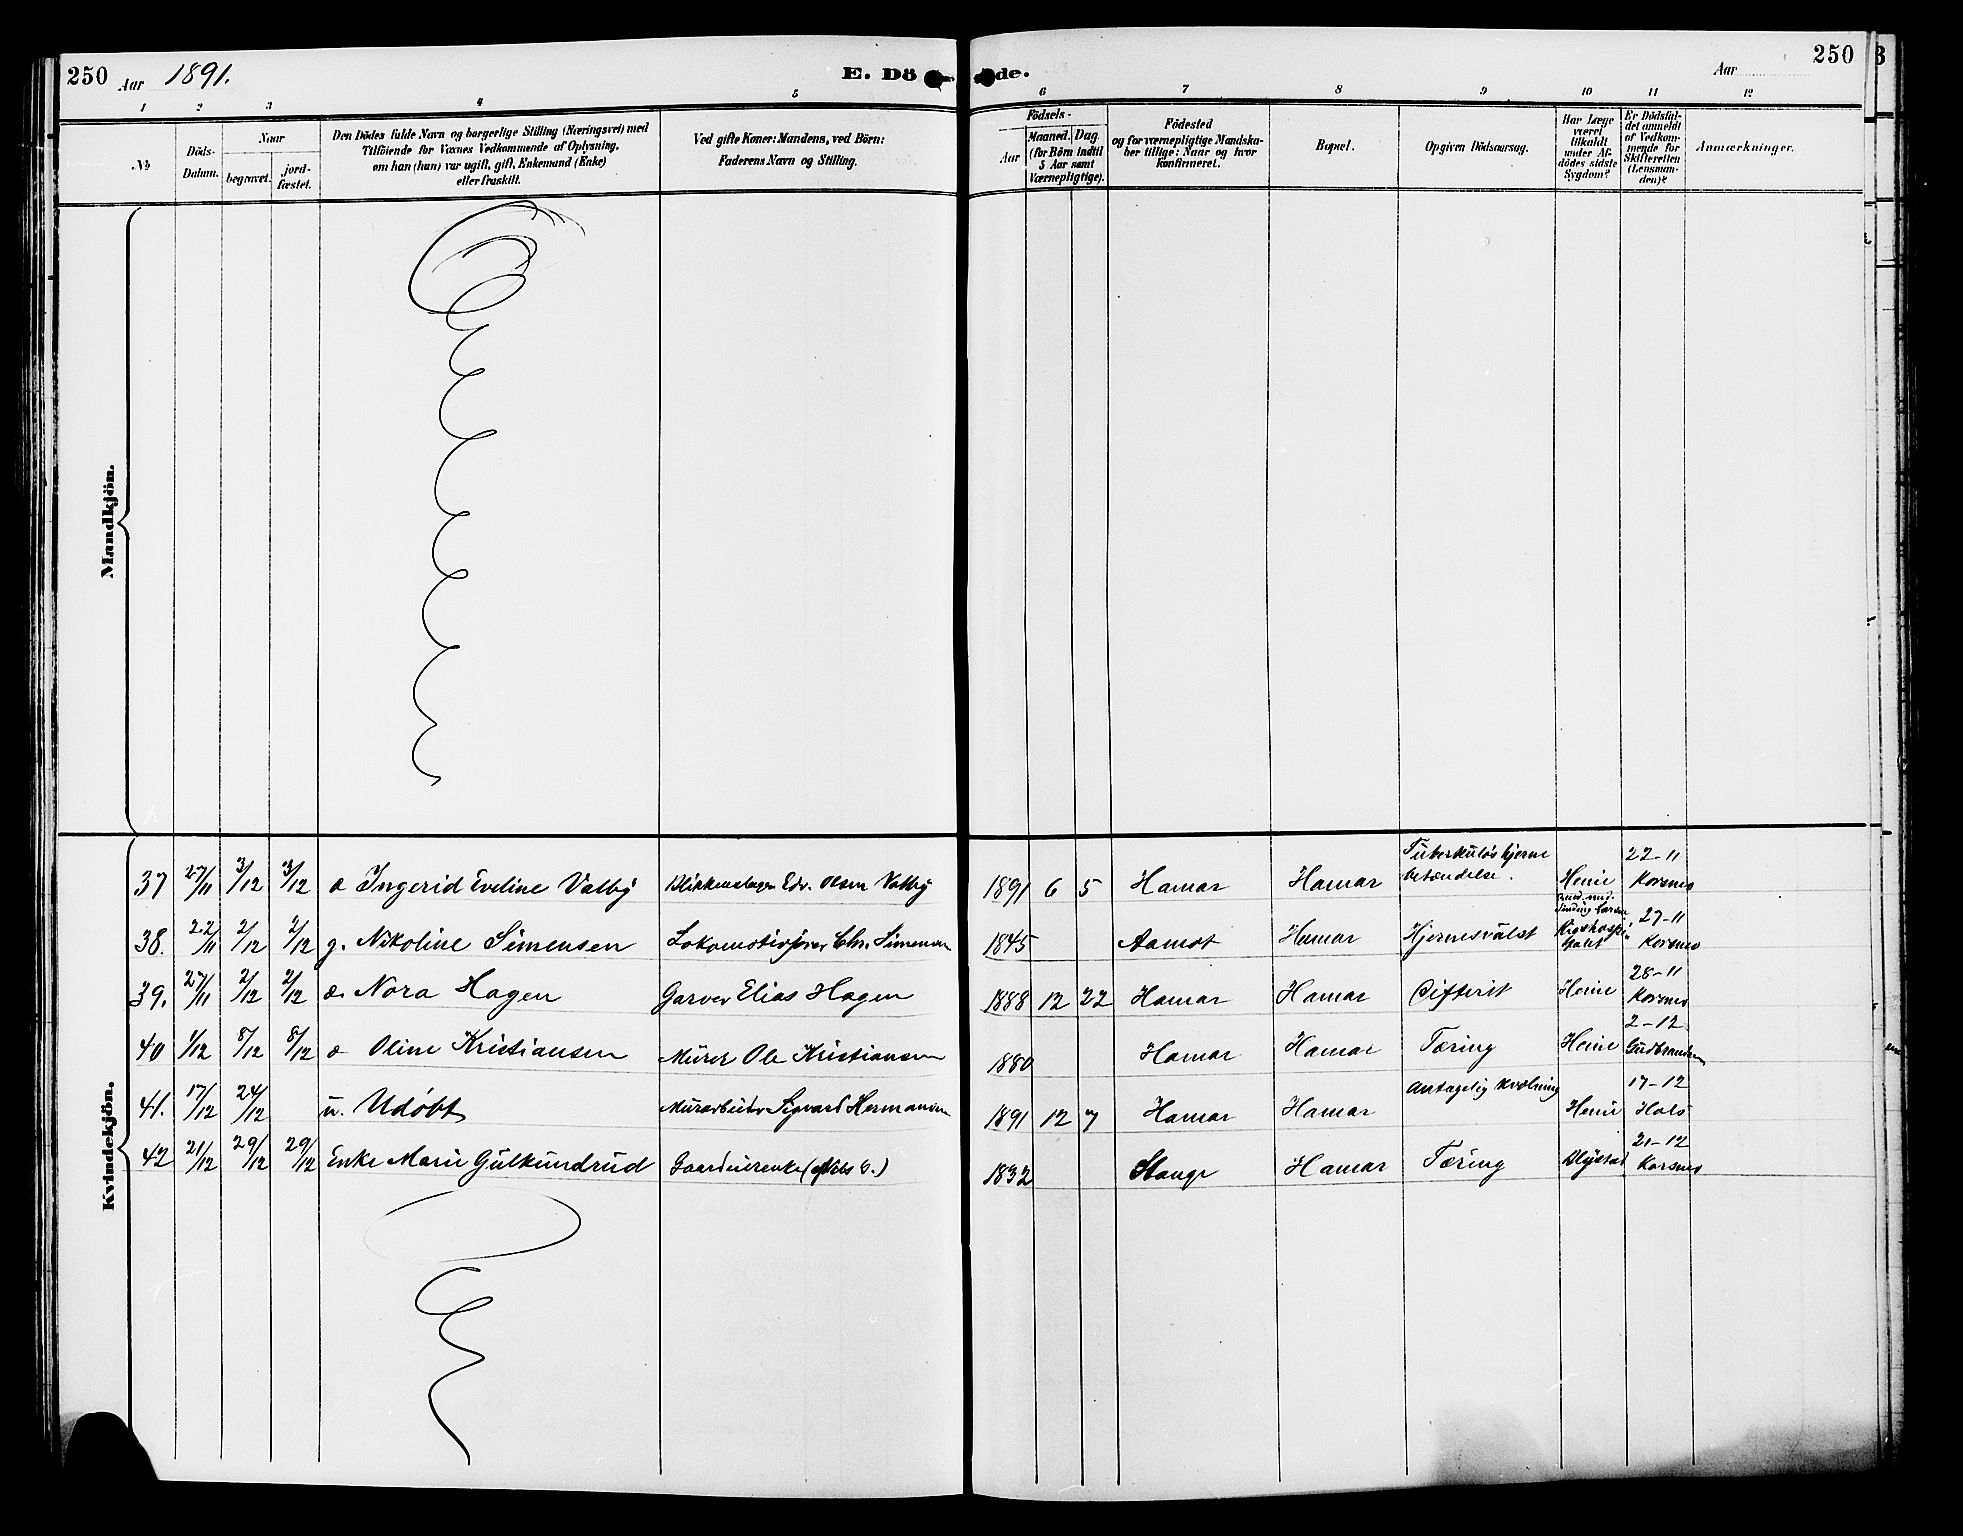 250 Aar 1891. E. Dö de. Aar 250
1 2 3 4 5 6 7 8 9 10 11 12
No
Döds-Datum.
Naar
begravet.
jord-fæstet.
Den Dödes fulde Navn og borgerlige Stilling (Næringsvei) med
Tilföiende for Voxnes Vedkommende af Oplysning,
om han (hun) var ugift, gift, Enkemand (Enke)
eller fraskilt.
Ved gifte Koner: Mandens, ved Börn:
Faderens Navn og Stilling.
Födsels-
Aar
Maaned. Dag.
(for Börn indtil
5 Aar samt
Værnepligtige).
Födested
og for værnepligtige Mandska-
ber tillige: Naar og hvor
konfirmeret.
Bopæl.
Opgiven Dödsaarsag.
Har Læge
været
tilkaldt
under Af-
dödes sidste
Sygdom?
Er Dödsfal-
det anmeldt
af Vedkom-
mende for
Skifteretten
(Lensman-
den)?
Anmærkninger.
Mandkjön.
Kvindekjön.
37 27/11 3/12 3/12 Ingerid Eveline Valby Blikkenslager Edv. Olsen Valby 1891 6 5 Hamar Hamar Tuberkuløs hjerne
betændelse. Heine 27-11
Korsmo
38. 22/11 2/12 2/12 g. Nikoline Simensen Lokomotivfører Chr. Simensen 1845 Aamot Hamar Hjernesvulst Rigshospi-
talet 27-11
Korsmo
39. 27/11 2/12 2/12 Nora Hagen Garver Elias Hagen 1888 12 22 Hamar Hamar Difterit Heine 28-11
Korsmo
40 1/12 8/12 8/12 Oline Kristiansen Murer Ole Kristiansen 1880 Hamar Hamar Tæring Heine 2-12
Gudbrandsen
41. 17/12 24/12 u. Udøbt Murarbeider Sigvard Hermansen 1891 12 7 Hamar Hamar Antagelig kvælning Heine 17-12
Hols
42 21/12 29/12 29/12 Enke Marie Gulkundrud Gaardeierenke 1832 Stange Hamar Tæring Blystad 21-12
Korsmo